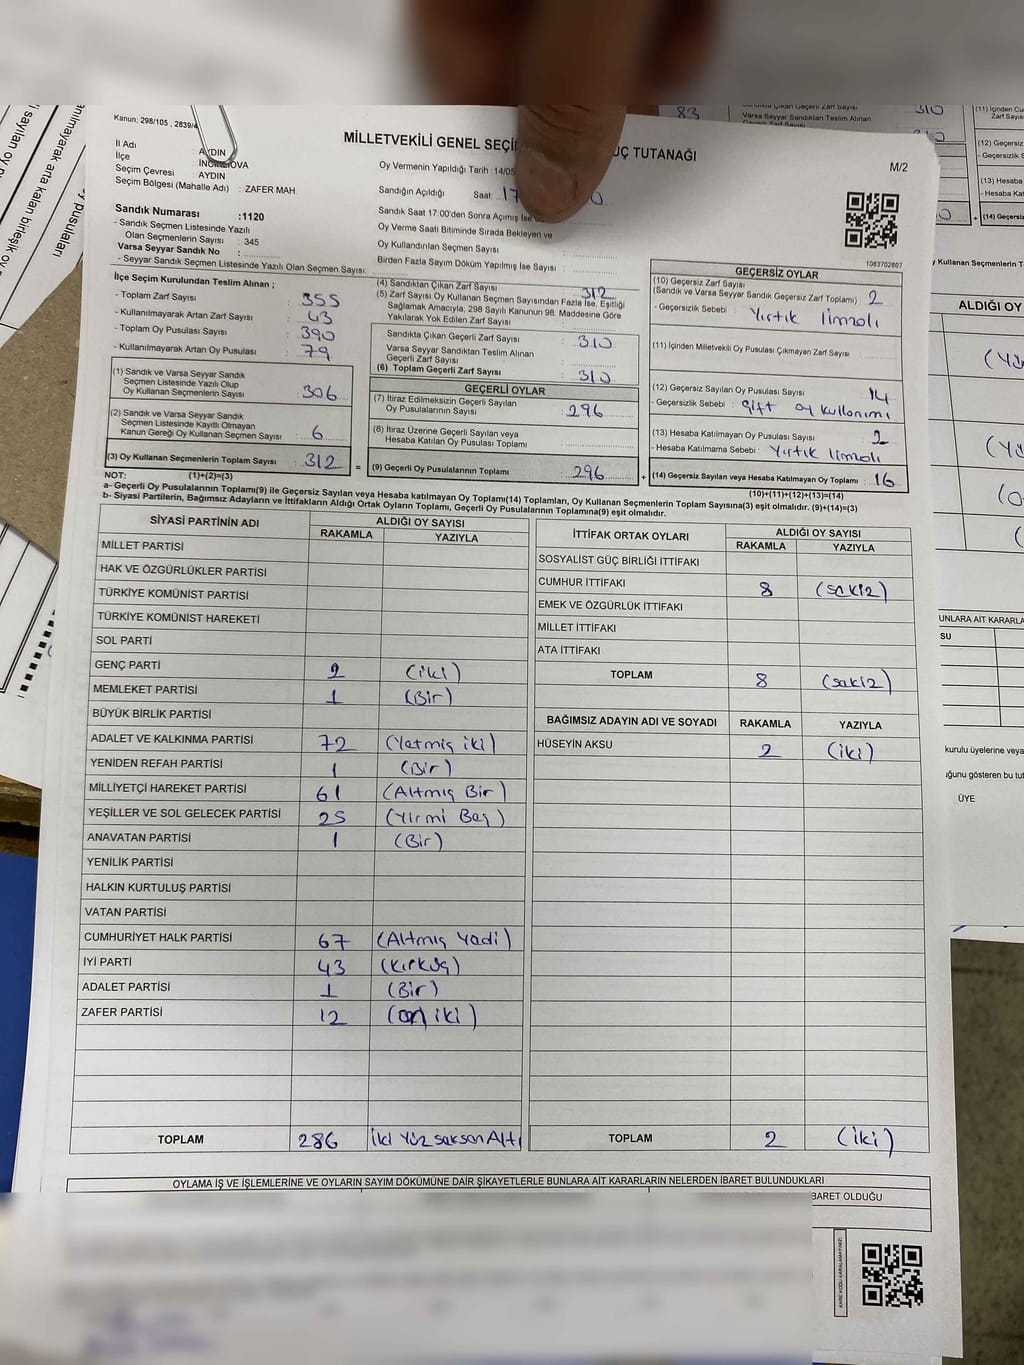 Kanun; 298/105 , 2839/4
MİLLETVEKİLİ GENEL SEÇİ UÇ TUTANAĞI
M/2
İl Adı : AYDIN
İlçe : İNCİRLİOVA
Seçim Çevresi : AYDIN
Seçim Bölgesi (Mahalle Adı) : ZAFER MAH
Oy Vermenin Yapıldığı Tarih :14/05
Sandığın Açıldığı Saat: 17
Sandık Numarası :1120
- Sandık Seçmen Listesinde Yazılı
Olan Seçmenlerin Sayısı : 345
Varsa Seyyar Sandık No :
- Seyyar Sandık Seçmen Listesinde Yazılı Olan Seçmen Sayısı:
Sandık Saat 17:00'den Sonra Açımış İse
Oy Verme Saati Bitiminde Sırada Bekleyen ve
Oy Kullandırılan Seçmen Sayısı :
Birden Fazla Sayım Döküm Yapılmış İse Sayısı :
1063702807
İlçe Seçim Kurulundan Teslim Alınan ;
- Toplam Zarf Sayısı : 355
- Kullanılmayarak Artan Zarf Sayısı : 43
- Toplam Oy Pusulası Sayısı : 390
- Kullanılmayarak Artan Oy Pusulası : 79
(1) Sandık ve Varsa Seyyar Sandık
Seçmen Listesinde Yazılı Olup
Oy Kullanan Seçmenlerin Sayısı : 306
(2) Sandık ve Varsa Seyyar Sandık
Seçmen Listesinde Kayıtlı Olmayan
Kanun Gereği Oy Kullanan Seçmen Sayısı : 6
(3) Oy Kullanan Seçmenlerin Toplam Sayısı : 312
(1)+(2)=(3)
(4) Sandıktan Çıkan Zarf Sayısı : 312
(5) Zarf Sayısı Oy Kullanan Seçmen Sayısından Fazla İse, Eşitliği
Sağlamak Amacıyla; 298 Sayılı Kanunun 98. Maddesine Göre
Yakılarak Yok Edilen Zarf Sayısı :
Sandıkta Çıkan Geçerli Zarf Sayısı : 310
Varsa Seyyar Sandıktan Teslim Alınan
Geçerli Zarf Sayısı :
(6) Toplam Geçerli Zarf Sayısı : 310
GEÇERLİ OYLAR
(7) İtiraz Edilmeksizin Geçerli Sayılan
Oy Pusulalarının Sayısı : 296
(8) İtiraz Üzerine Geçerli Sayılan veya
Hesaba Katılan Oy Pusulası Toplamı :
= (9) Geçerli Oy Pusulalarının Toplamı : 296
GEÇERSİZ OYLAR
(10) Geçersiz Zarf Sayısı
(Sandık ve Varsa Seyyar Sandık Geçersiz Zarf Toplamı) : 2
- Geçersizlik Sebebi : Yırtık limzalı
(11) İçinden Milletvekili Oy Pusulası Çıkmayan Zarf Sayısı :
(12) Geçersiz Sayılan Oy Pusulası Sayısı : 14
- Geçersizlik Sebebi : Çift oy kullonımı
(13) Hesaba Katılmayan Oy Pusulası Sayısı : 2
- Hesaba Katılmama Sebebi : Yırtık limzalı
+ (14) Geçersiz Sayılan veya Hesaba Katılmayan Oy Toplamı : 16
(10)+(11)+(12)+(13)=(14)
NOT:
a- Geçerli Oy Pusulalarının Toplamı(9) ile Geçersiz Sayılan veya Hesaba katılmayan Oy Toplamı(14) Toplamları, Oy Kullanan Seçmenlerin Toplam Sayısına(3) eşit olmalıdır. (9)+(14)=(3)
b- Siyasi Partilerin, Bağımsız Adayların ve İttifakların Aldığı Ortak Oyların Toplamı, Geçerli Oy Pusulalarının Toplamına(9) eşit olmalıdır.
SİYASİ PARTİNİN ADI ALDIĞI OY SAYISI
RAKAMLA YAZIYLA
MİLLET PARTİSİ
HAK VE ÖZGÜRLÜKLER PARTİSİ
TÜRKİYE KOMÜNİST PARTİSİ
TÜRKİYE KOMÜNİST HAREKETİ
SOL PARTİ
GENÇ PARTİ 2 (iki)
MEMLEKET PARTİSİ 1 (Bir)
BÜYÜK BİRLİK PARTİSİ
ADALET VE KALKINMA PARTİSİ 72 (Yetmiş iki)
YENİDEN REFAH PARTİSİ 1 (Bir)
MİLLİYETÇİ HAREKET PARTİSİ 61 (Altmış Bir)
YEŞİLLER VE SOL GELECEK PARTİSİ 25 (Yirmi Beş)
ANAVATAN PARTİSİ 1 (Bir)
YENİLİK PARTİSİ
HALKIN KURTULUŞ PARTİSİ
VATAN PARTİSİ
CUMHURİYET HALK PARTİSİ 67 (Altmış Yedi)
İYİ PARTİ 43 (Kırküç)
ADALET PARTİSİ 1 (Bir)
ZAFER PARTİSİ 12 (on iki)
TOPLAM 286 İki Yüz seksen Altı
İTTİFAK ORTAK OYLARI ALDIĞI OY SAYISI
RAKAMLA YAZIYLA
SOSYALİST GÜÇ BİRLİĞİ İTTİFAKI
CUMHUR İTTİFAKI 8 (sekiz)
EMEK VE ÖZGÜRLÜK İTTİFAKI
MİLLET İTTİFAKI
ATA İTTİFAKI
TOPLAM 8 (sekiz)
BAĞIMSIZ ADAYIN ADI VE SOYADI RAKAMLA YAZIYLA
HÜSEYİN AKSU 2 (iki)
TOPLAM 2 (iki)
OYLAMA İŞ VE İŞLEMLERİNE VE OYLARIN SAYIM DÖKÜMÜNE DAİR ŞİKAYETLERLE BUNLARA AİT KARARLARIN NELERDEN İBARET BULUNDUKLARI
BARET OLDUĞU
KARE KODU KARALAMAYINIZ!